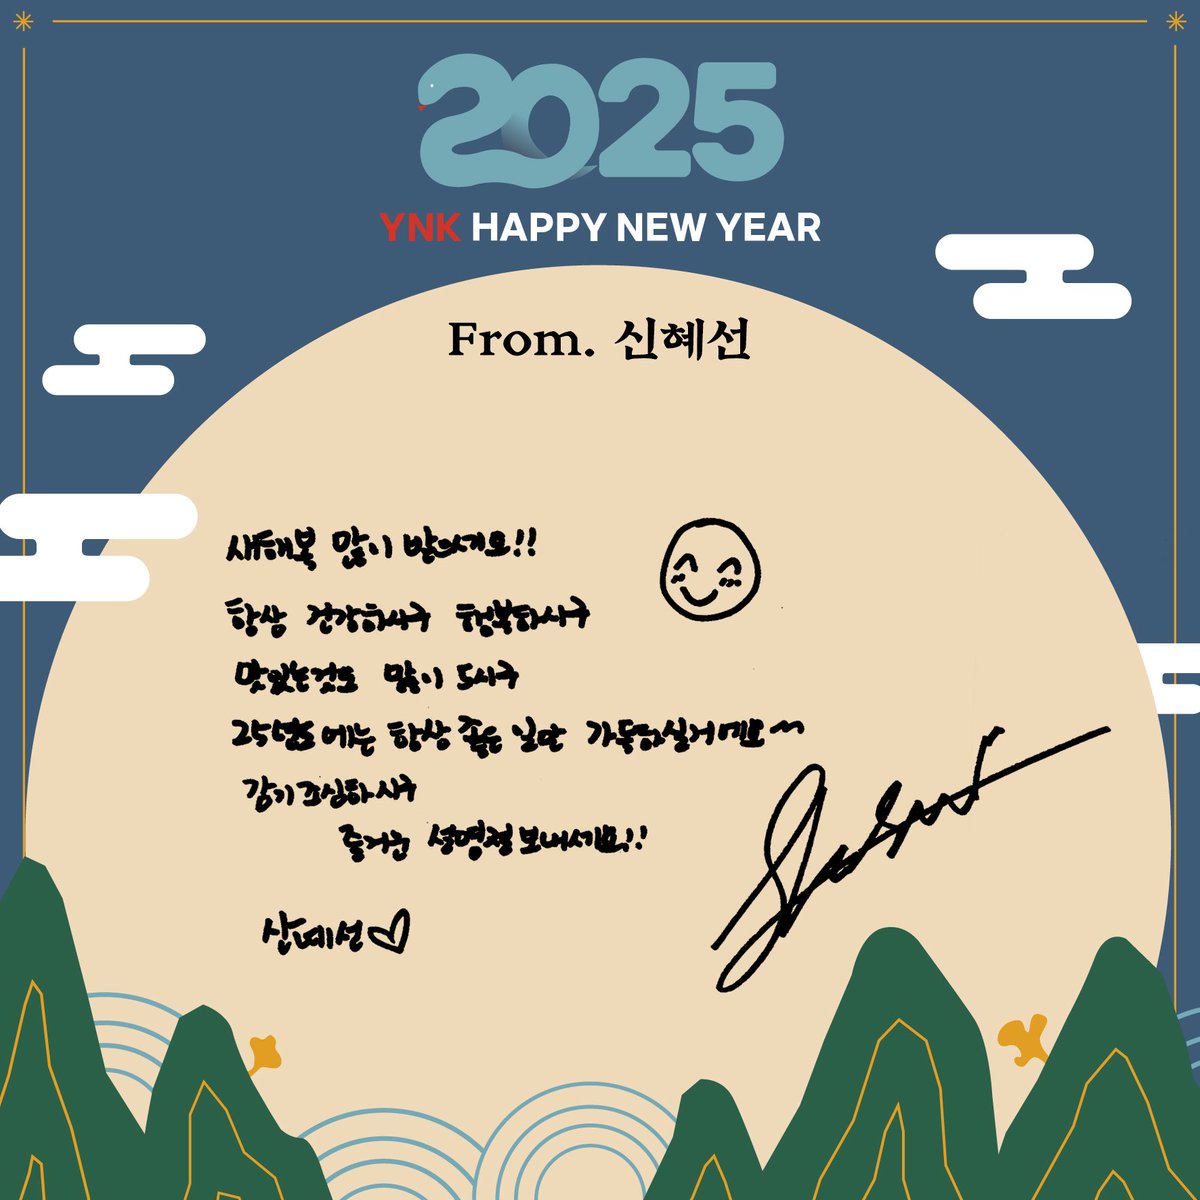 2025
YNK HAPPY NEW YEAR
From. 신혜선
새해복 많이 받으세요!!
항상 건강하시구 행복하시구
맛있는것도 많이 드시구
25년도에는 항상 좋은 일만 가득하실거예요~
감기조심하시구
즐거운 설명절보내세요!!
신혜선♡